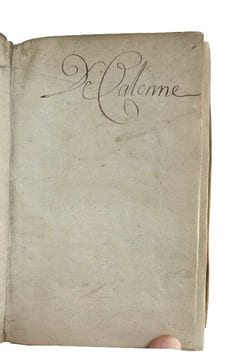 De Calonne